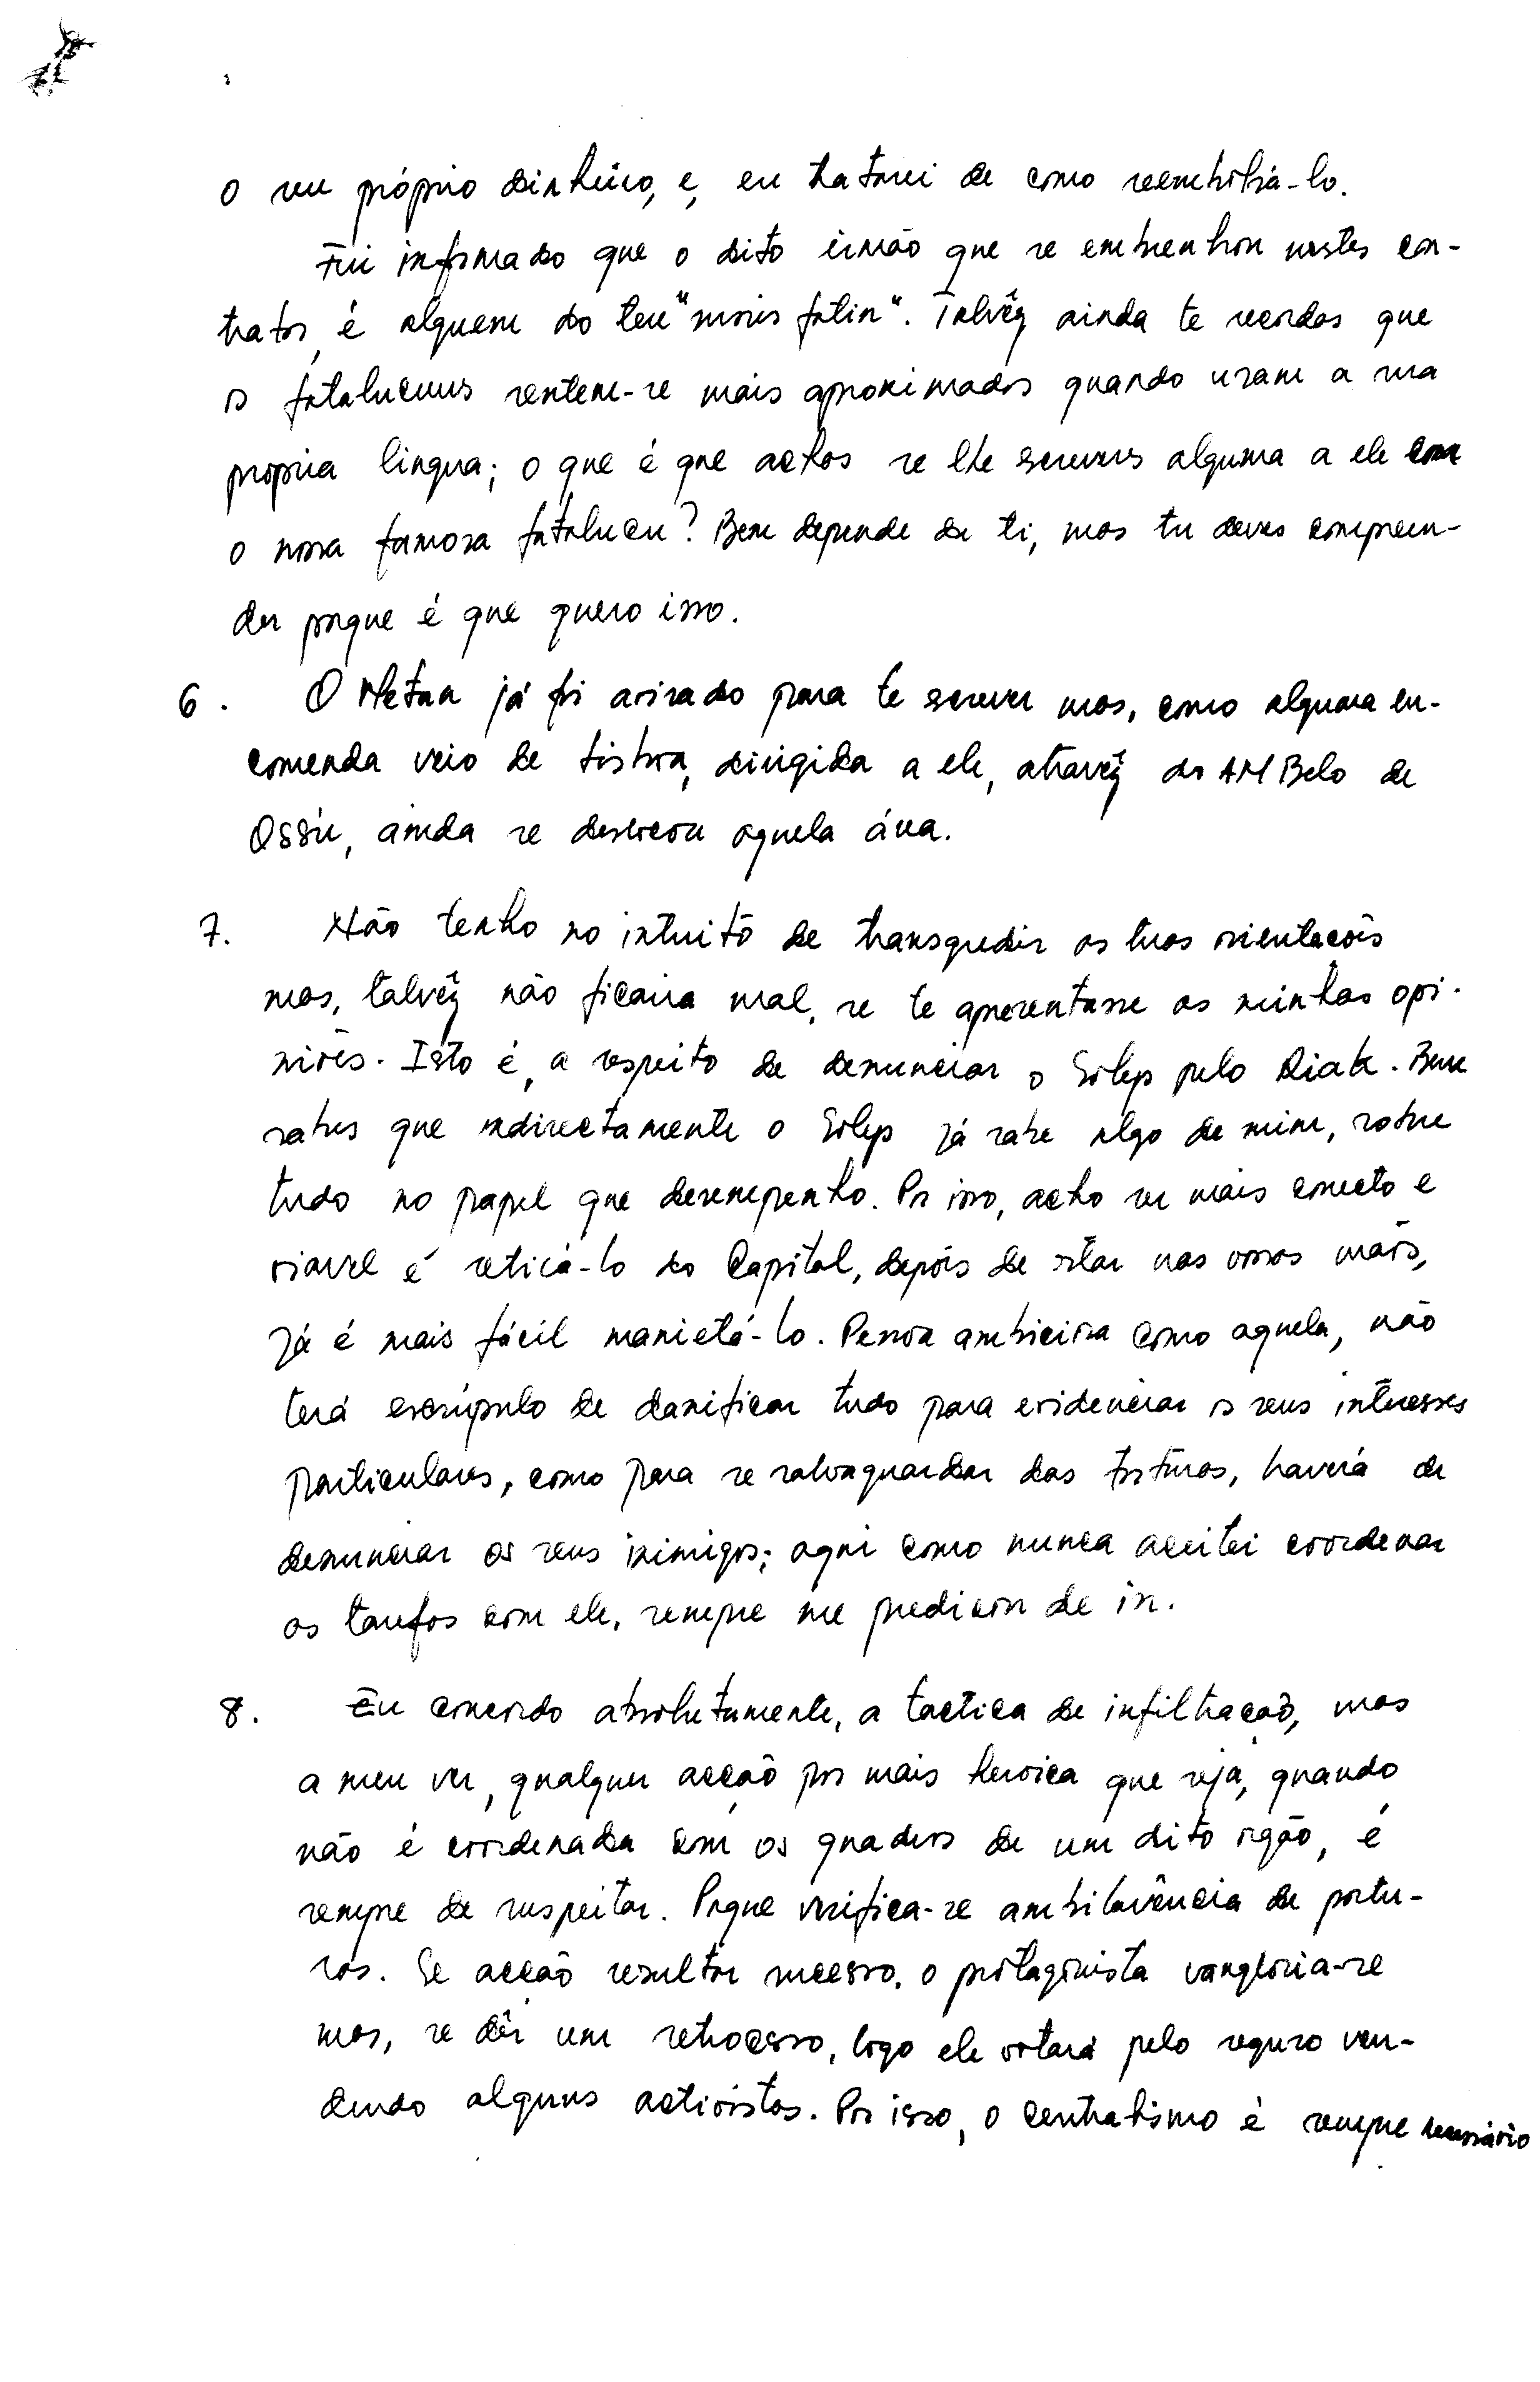 o seu próprio dinheiro, e, eu tratarei de como reembolsá-lo.
Fui informado que o dito irmão que se embrenhou nestes con-
tratos, é alguem do teu "moris fatin". Talvêz ainda te recordas que
os fatalucuus sentem-se mais aproximados quando usam a sua
propria lingua; o que é que achas se lhe screveres alguma a ele com
o nossa famosa fatalucu? Bem depende de ti, mas tu deves compreen-
der porque é que quero isso.
6. O Metan já foi avisado para te screver mas, como alguma en-
comenda veio de Lisboa, dirigida a ele, atravéz do AM Belo de
Ossú, ainda se deslocou aquela área.
7. Não tenho no intuito de transgredir as tuas orientações
mas, talvêz não ficaria mal, se te apresentasse as minhas opi-
niões. Isto é, a respeito de denunciar o Solep pelo Riak. Bem
sabes que indirectamente o Solep já sabe algo de mim, sobre
tudo no papel que desempenho. Por isso, acho ser mais correcto e
viavel é retirá-lo da Capital, depois de star nas vossas mãos,
já é mais fácil manietá-lo. Pessoa ambiciosa como aquela, não
terá escrúpulo de danificar tudo para evidenciar os seus interesses
particulares, como para se salvaguardar das torturas, haverá de
denunciar os seus inimigos; aqui como nunca aceitei coordenar
as tarefas com ele, sempre me predicou de in.
8. Eu concordo absolutamente, a tactica de infiltração, mas
a meu ver, qualquer acção por mais heroica que seja, quando
não é coordenada com os quadros de um dito orgão, é
sempre de suspeitar. Porque verifica-se ambilavência de postu-
ras. Se acção resultar sucesso, o protagonista vangloria-se
mas, se dêr um retrocesso, logo ele votará pelo seguro ven-
dendo alguns activistas. Por isso, o centralismo é sempre necessário